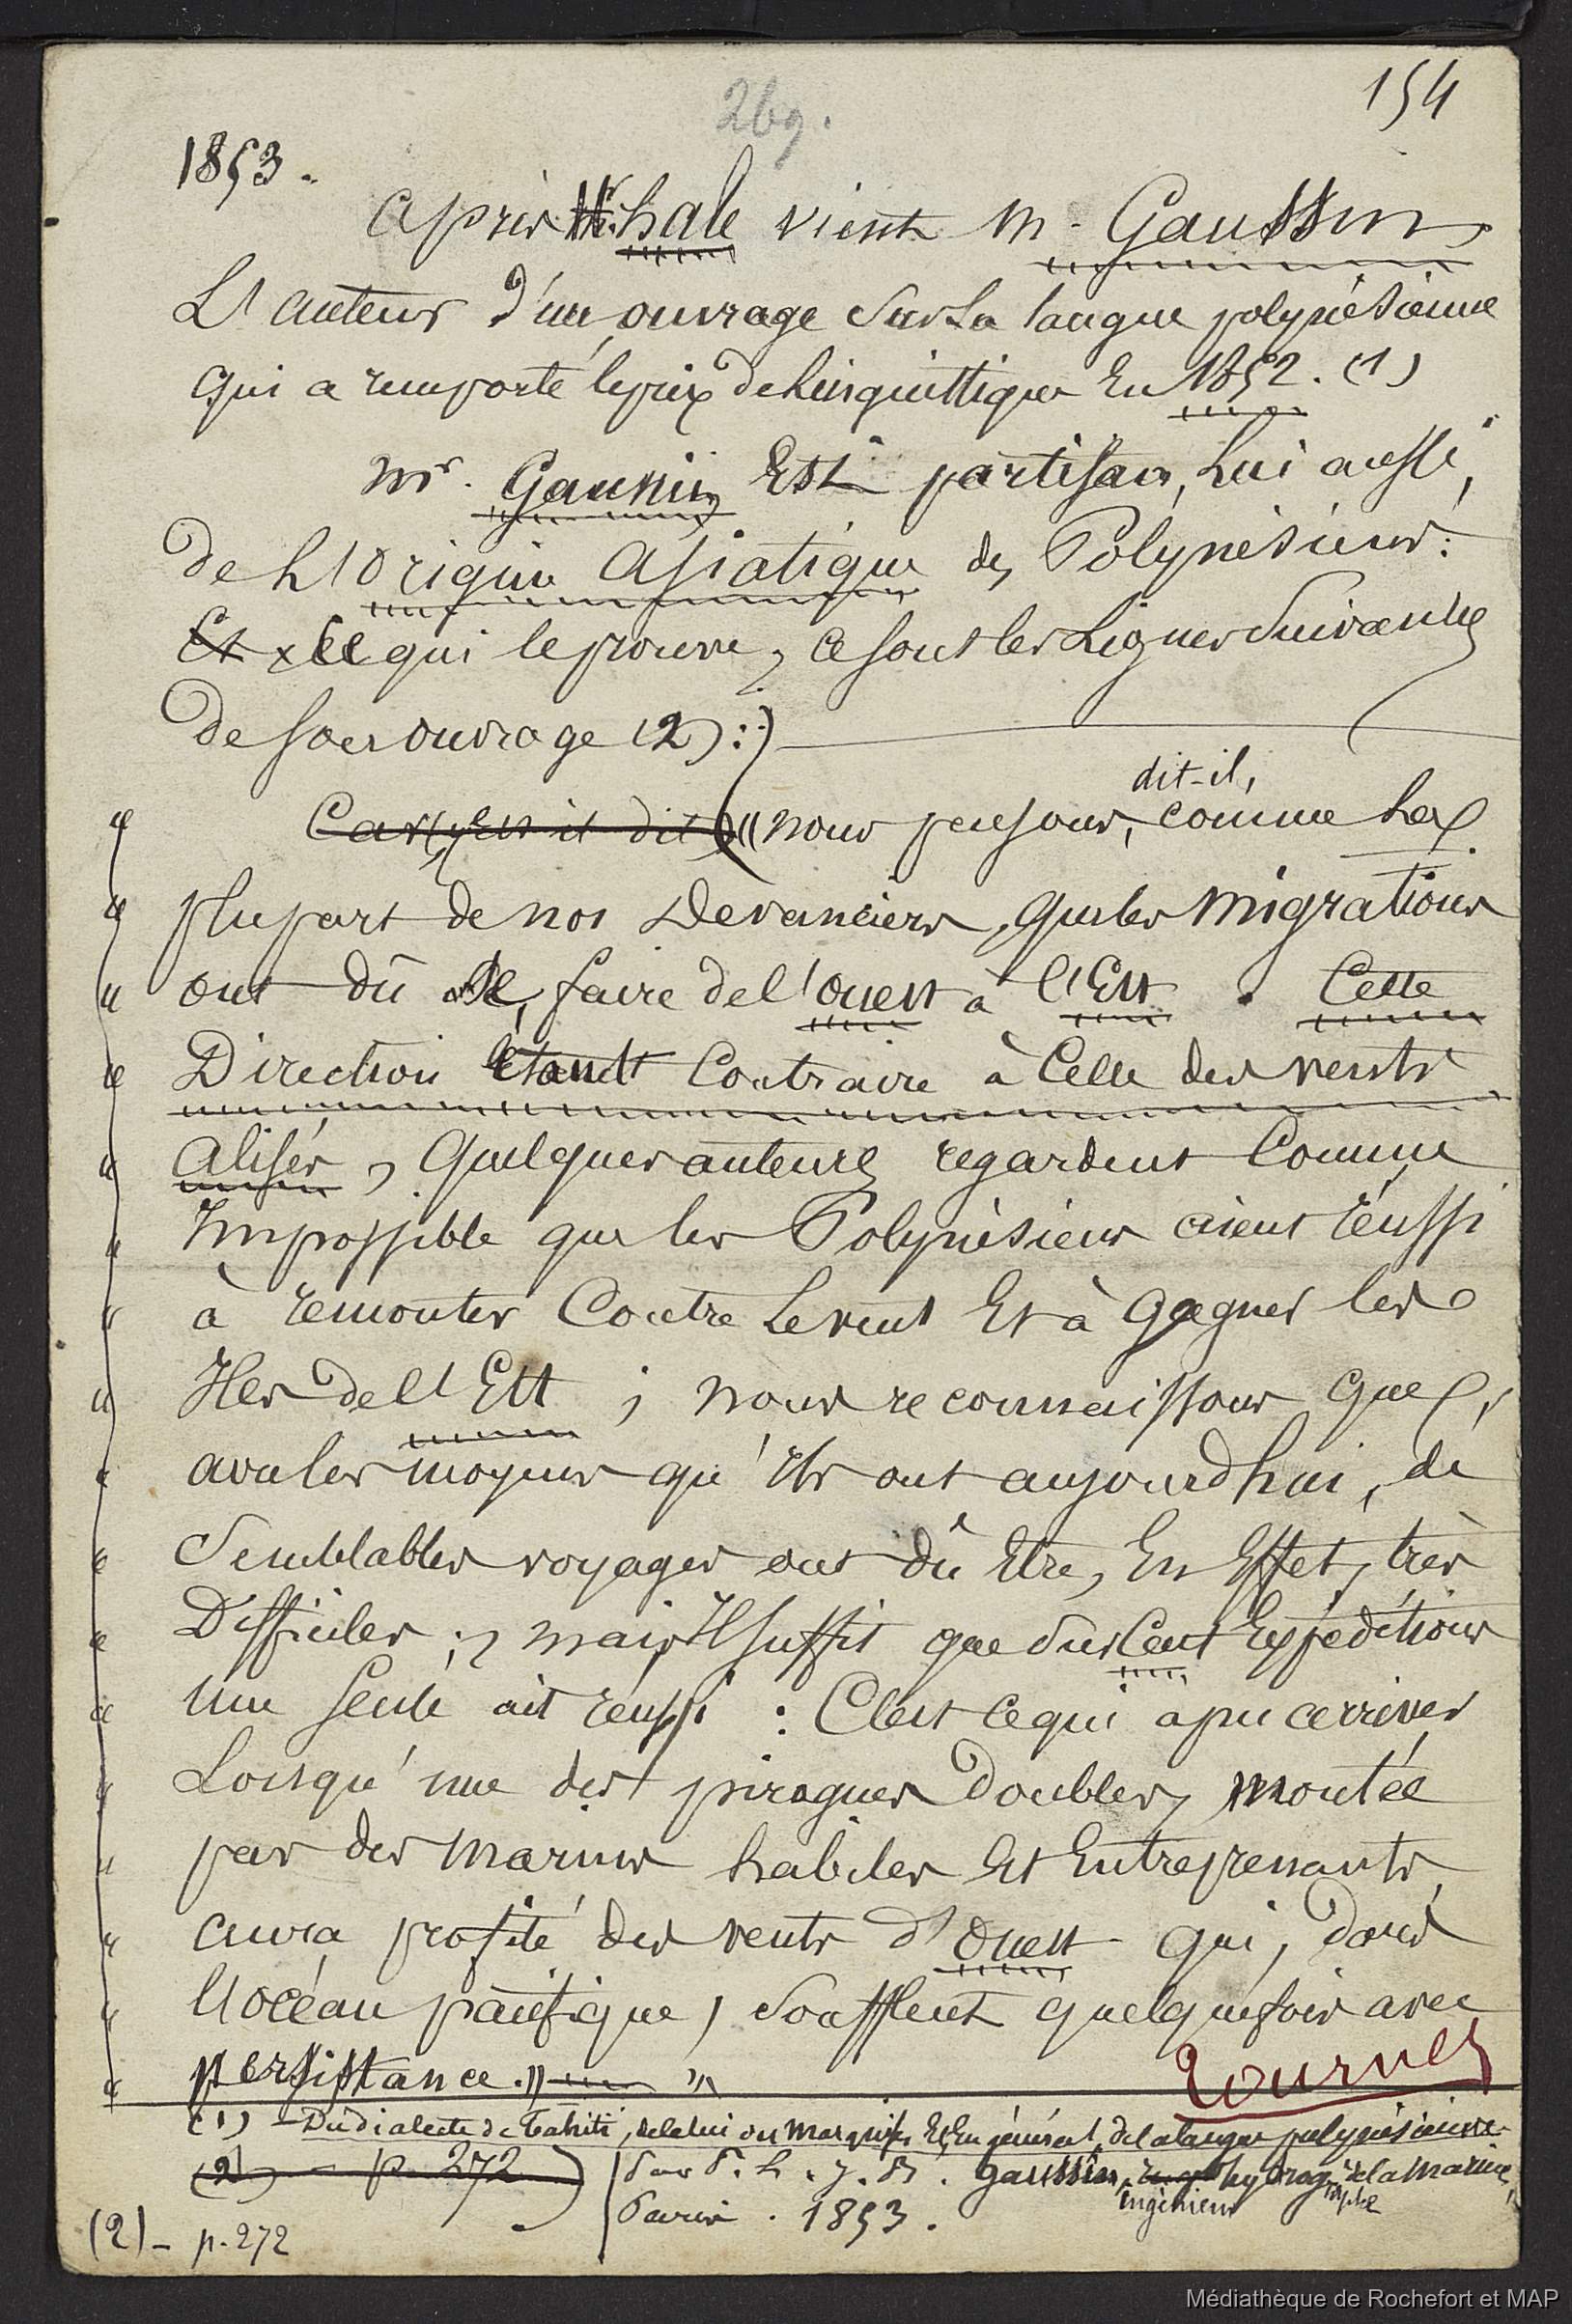 154
269.
1853.
après hale vient M. Gaussin
L'auteur d'un ouvrage sur la langue polynésienne
qui a remporté le prix de linguistique en 1852. (1)
Mr. Gaussin Est partisan, lui aussi,
de l'Origine asiatique des Polynésiens :
Et ce qui le prouve, ce sont les lignes suivantes
de son ouvrage (2) :
dit-il,
« nous pensons, comme la
« plupart de nos Devanciers, que les migrations
« ont dû se faire de l'ouest à l'Est. Cette
« Direction étant Contraire à Celle des vents
« alisés, quelques auteurs regardent Comme
« Impossible que les Polynésiens aient réussi
« à remonter Contre le vent Et à gagner les
« Iles de l'Est ; nous reconnaissons que,
« avec les moyens qu'Ils ont aujourd'hui, de
« Semblables voyages ont dû Etre, En Effet, très
« Difficiles ; mais Il suffit que sur Cent Expéditions
« une seule ait réussi : C'est ce qui a pu arriver
« Lorsqu'une des pirogues doubles, montée
« par des marins habiles Et Entreprenants
« aura profité des vents d'Ouest qui, dans
« l'océan pacifique, soufflent quelquefois avec
« persistance. »
Tournez
(1) - Du dialecte de Tahiti, de celui des Marquises Et, En général, de la langue polynésienne
(2) - p. 272
Par P. L. J. B. Gaussin, hydrog de la Marine,
Ingénieur raphe
Paris. 1853.
(2) - p. 272
Médiathèque de Rochefort et MAP